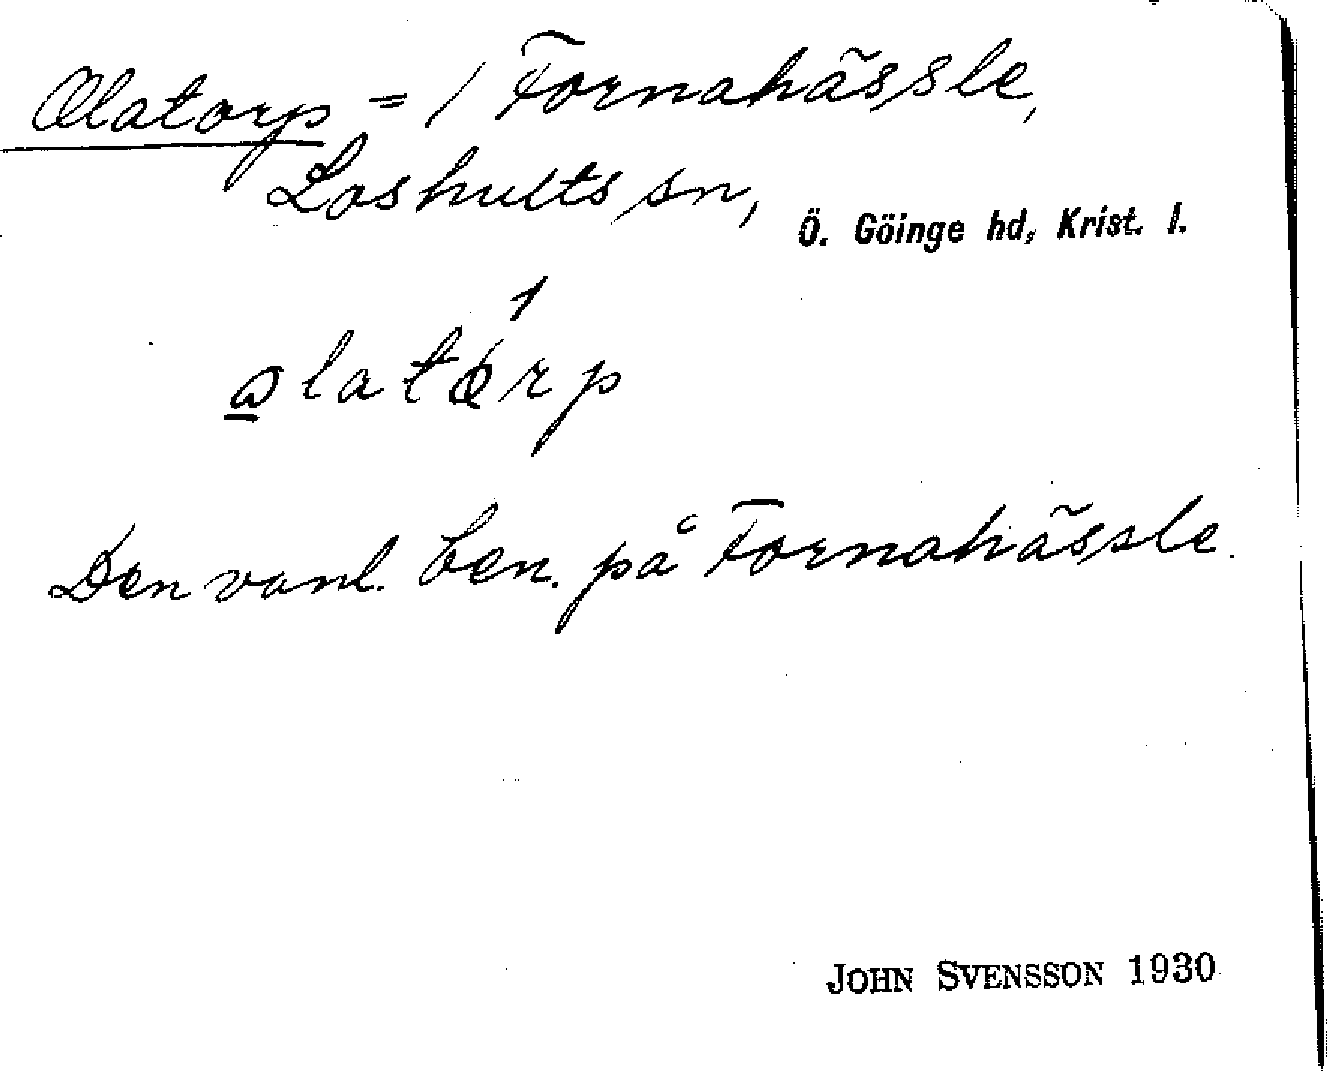 Olatorp = / Fornahässle,
Loshults sn, Ö. Göinge hd, Krist. l.
olatórp
Den vanl. ben. på Fornahässle.
JOHN SVENSSON 1930